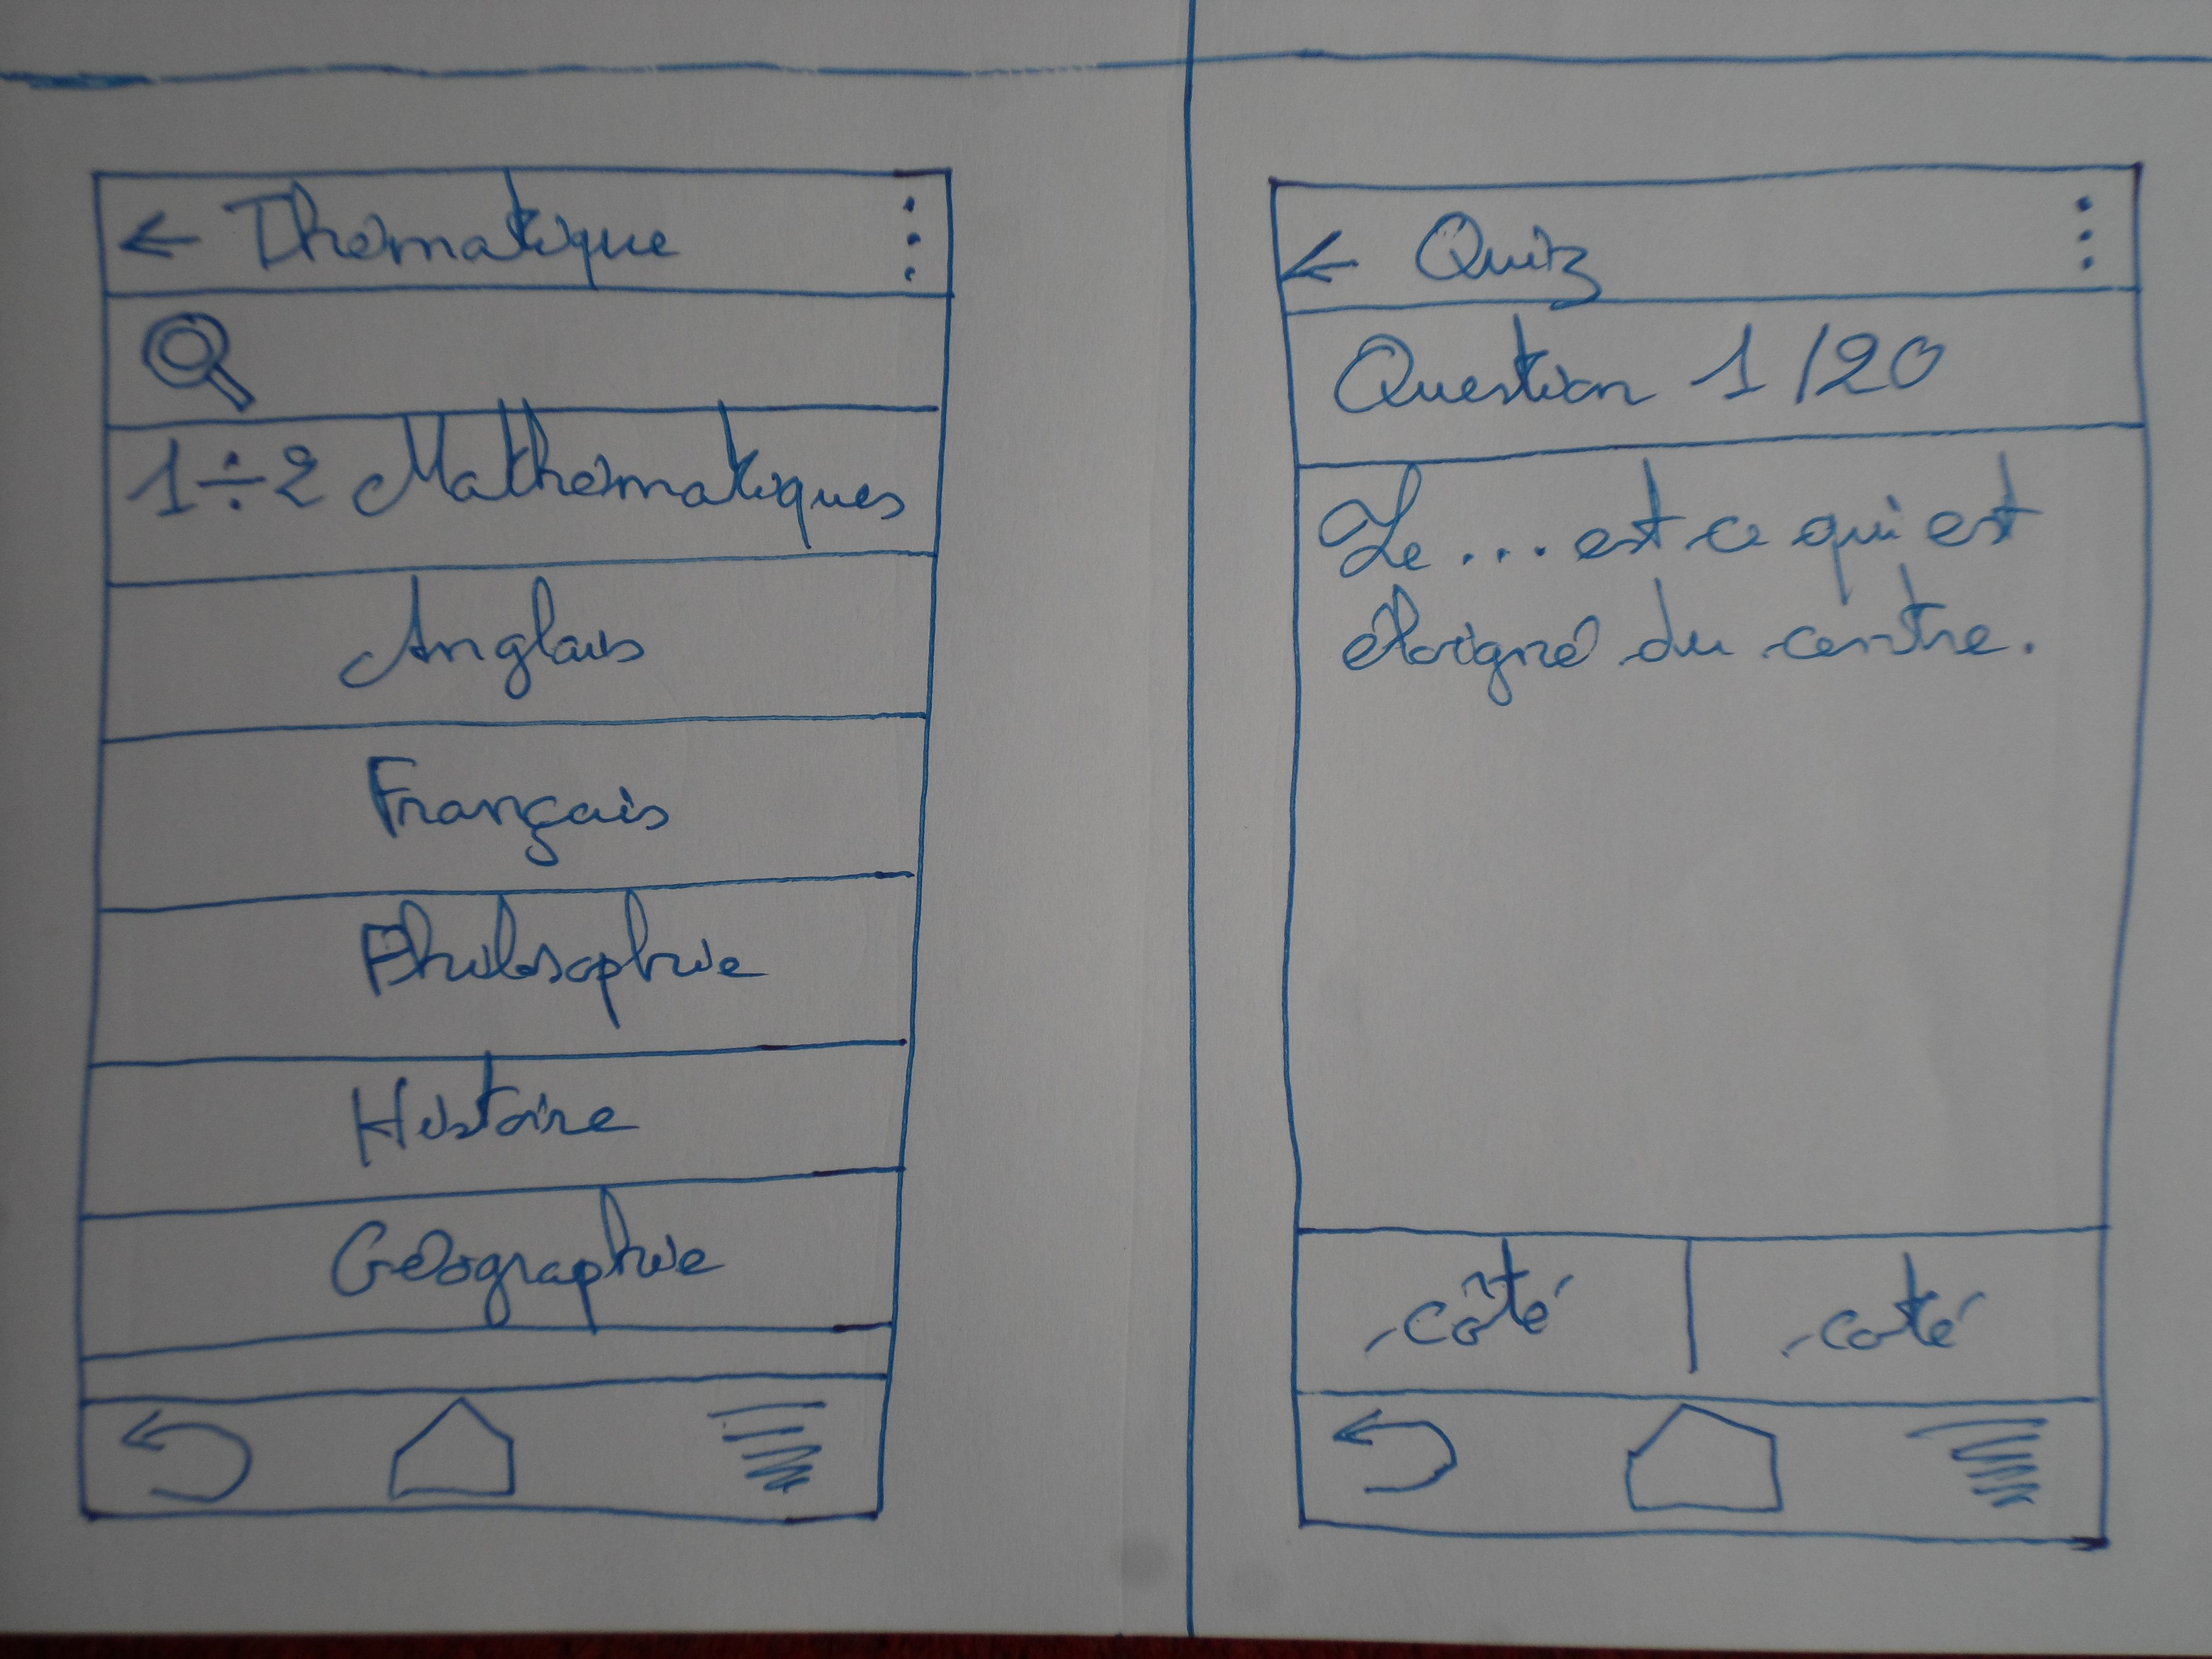 ← Thématique
1÷2 Mathématiques
Anglais
Français
Philosophie
Histoire
Géographie
← Quiz
Question 1/20
Le ... est ce qui est
éloigné du centre.
côté
coté